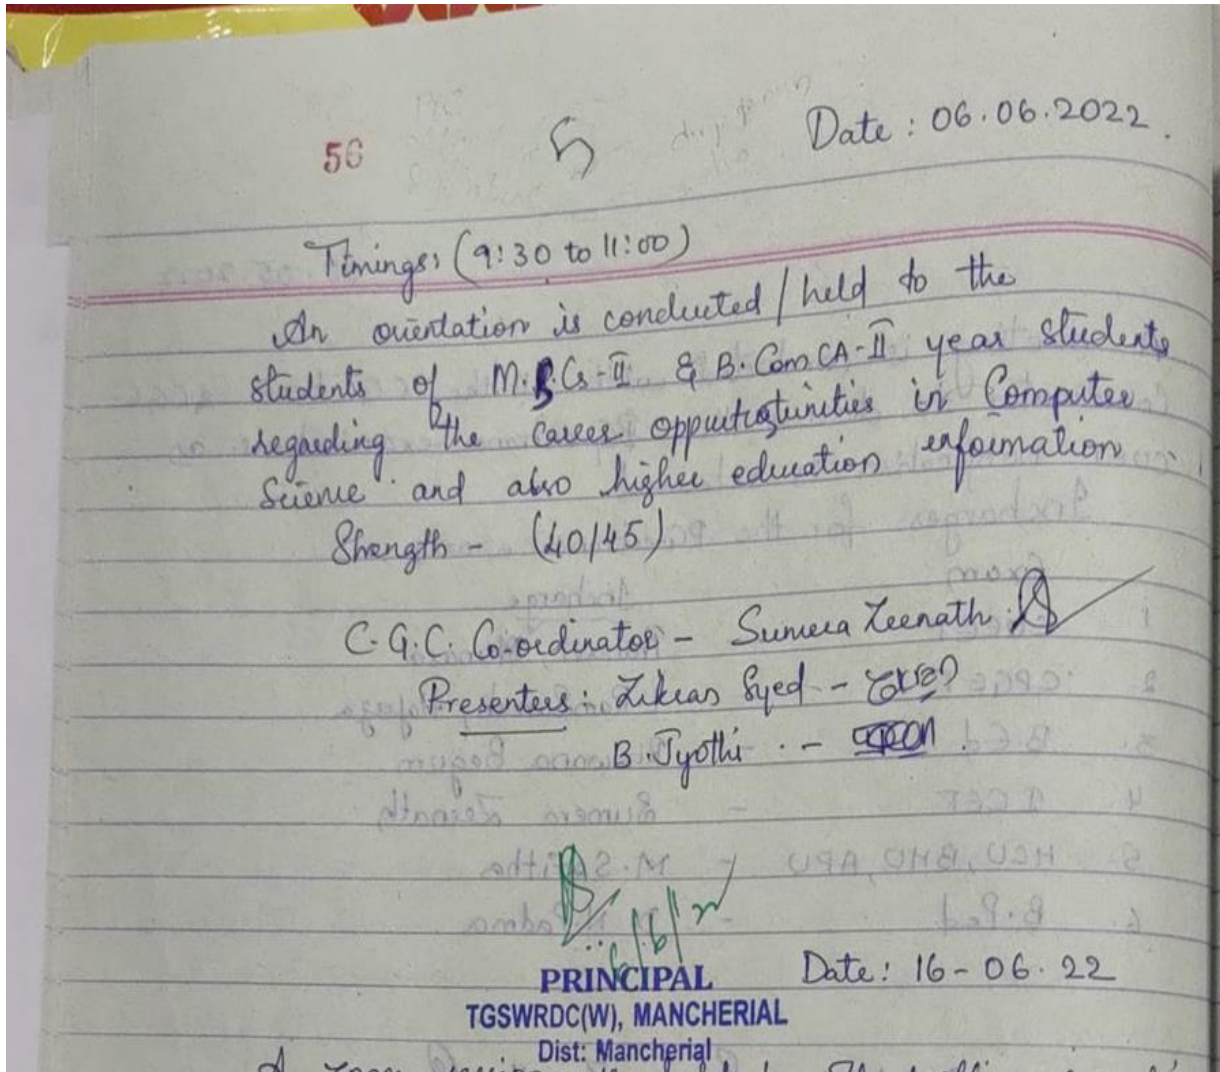 56
5
Date : 06.06.2022.
Timings: (9:30 to 11:00)
An orientation is conducted / held to the
students of M.S.Cs-II & B.Com CA-II year students
regarding the career opportunities in Computer
Science and also higher education information
Strength - (40/45)
C.G.C. Co-ordinator - Sumera Zeenath
Presenters: Zikras Syed -
B. Jyothi -
6/6/22
PRINCIPAL
TGSWRDC(W), MANCHERIAL
Dist: Mancherial
Date: 16-06.22